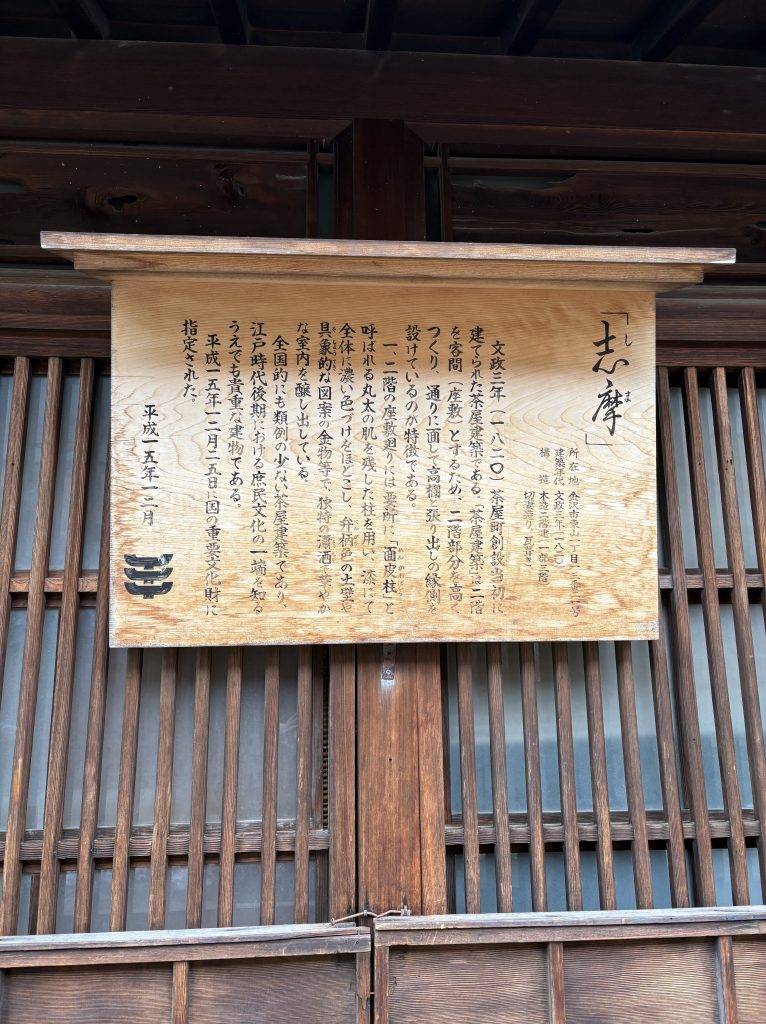 「志摩」
し ま
所在地 金沢市東山一丁目一三番二一号
建築年代 文政三年(一八二〇)
構造 木造二階建(一部平屋)
切妻造り、瓦葺き
文政三年(一八二〇)茶屋町創設当初に
建てられた茶屋建築である。「茶屋建築」は二階
を客間(座敷)とするため、二階部分を高く
つくり、通りに面して高欄、張り出しの縁側を
設けているのが特徴である。
一、二階の座敷廻りには要所に、「面皮柱」と
めんかわ
呼ばれる丸太の肌を残した柱を用い、漆にて
全体に濃い色づけをほどこし、弁柄色の土壁や
べんがら
具象的な図案の金物等で、独特の瀟洒で華やか
な室内を醸し出している。
全国的にも類例の少ない茶屋建築であり、
江戸時代後期における庶民文化の一端を知る
うえでも貴重な建物である。
平成一五年一二月二五日に国の重要文化財に
指定された。
平成一五年一二月